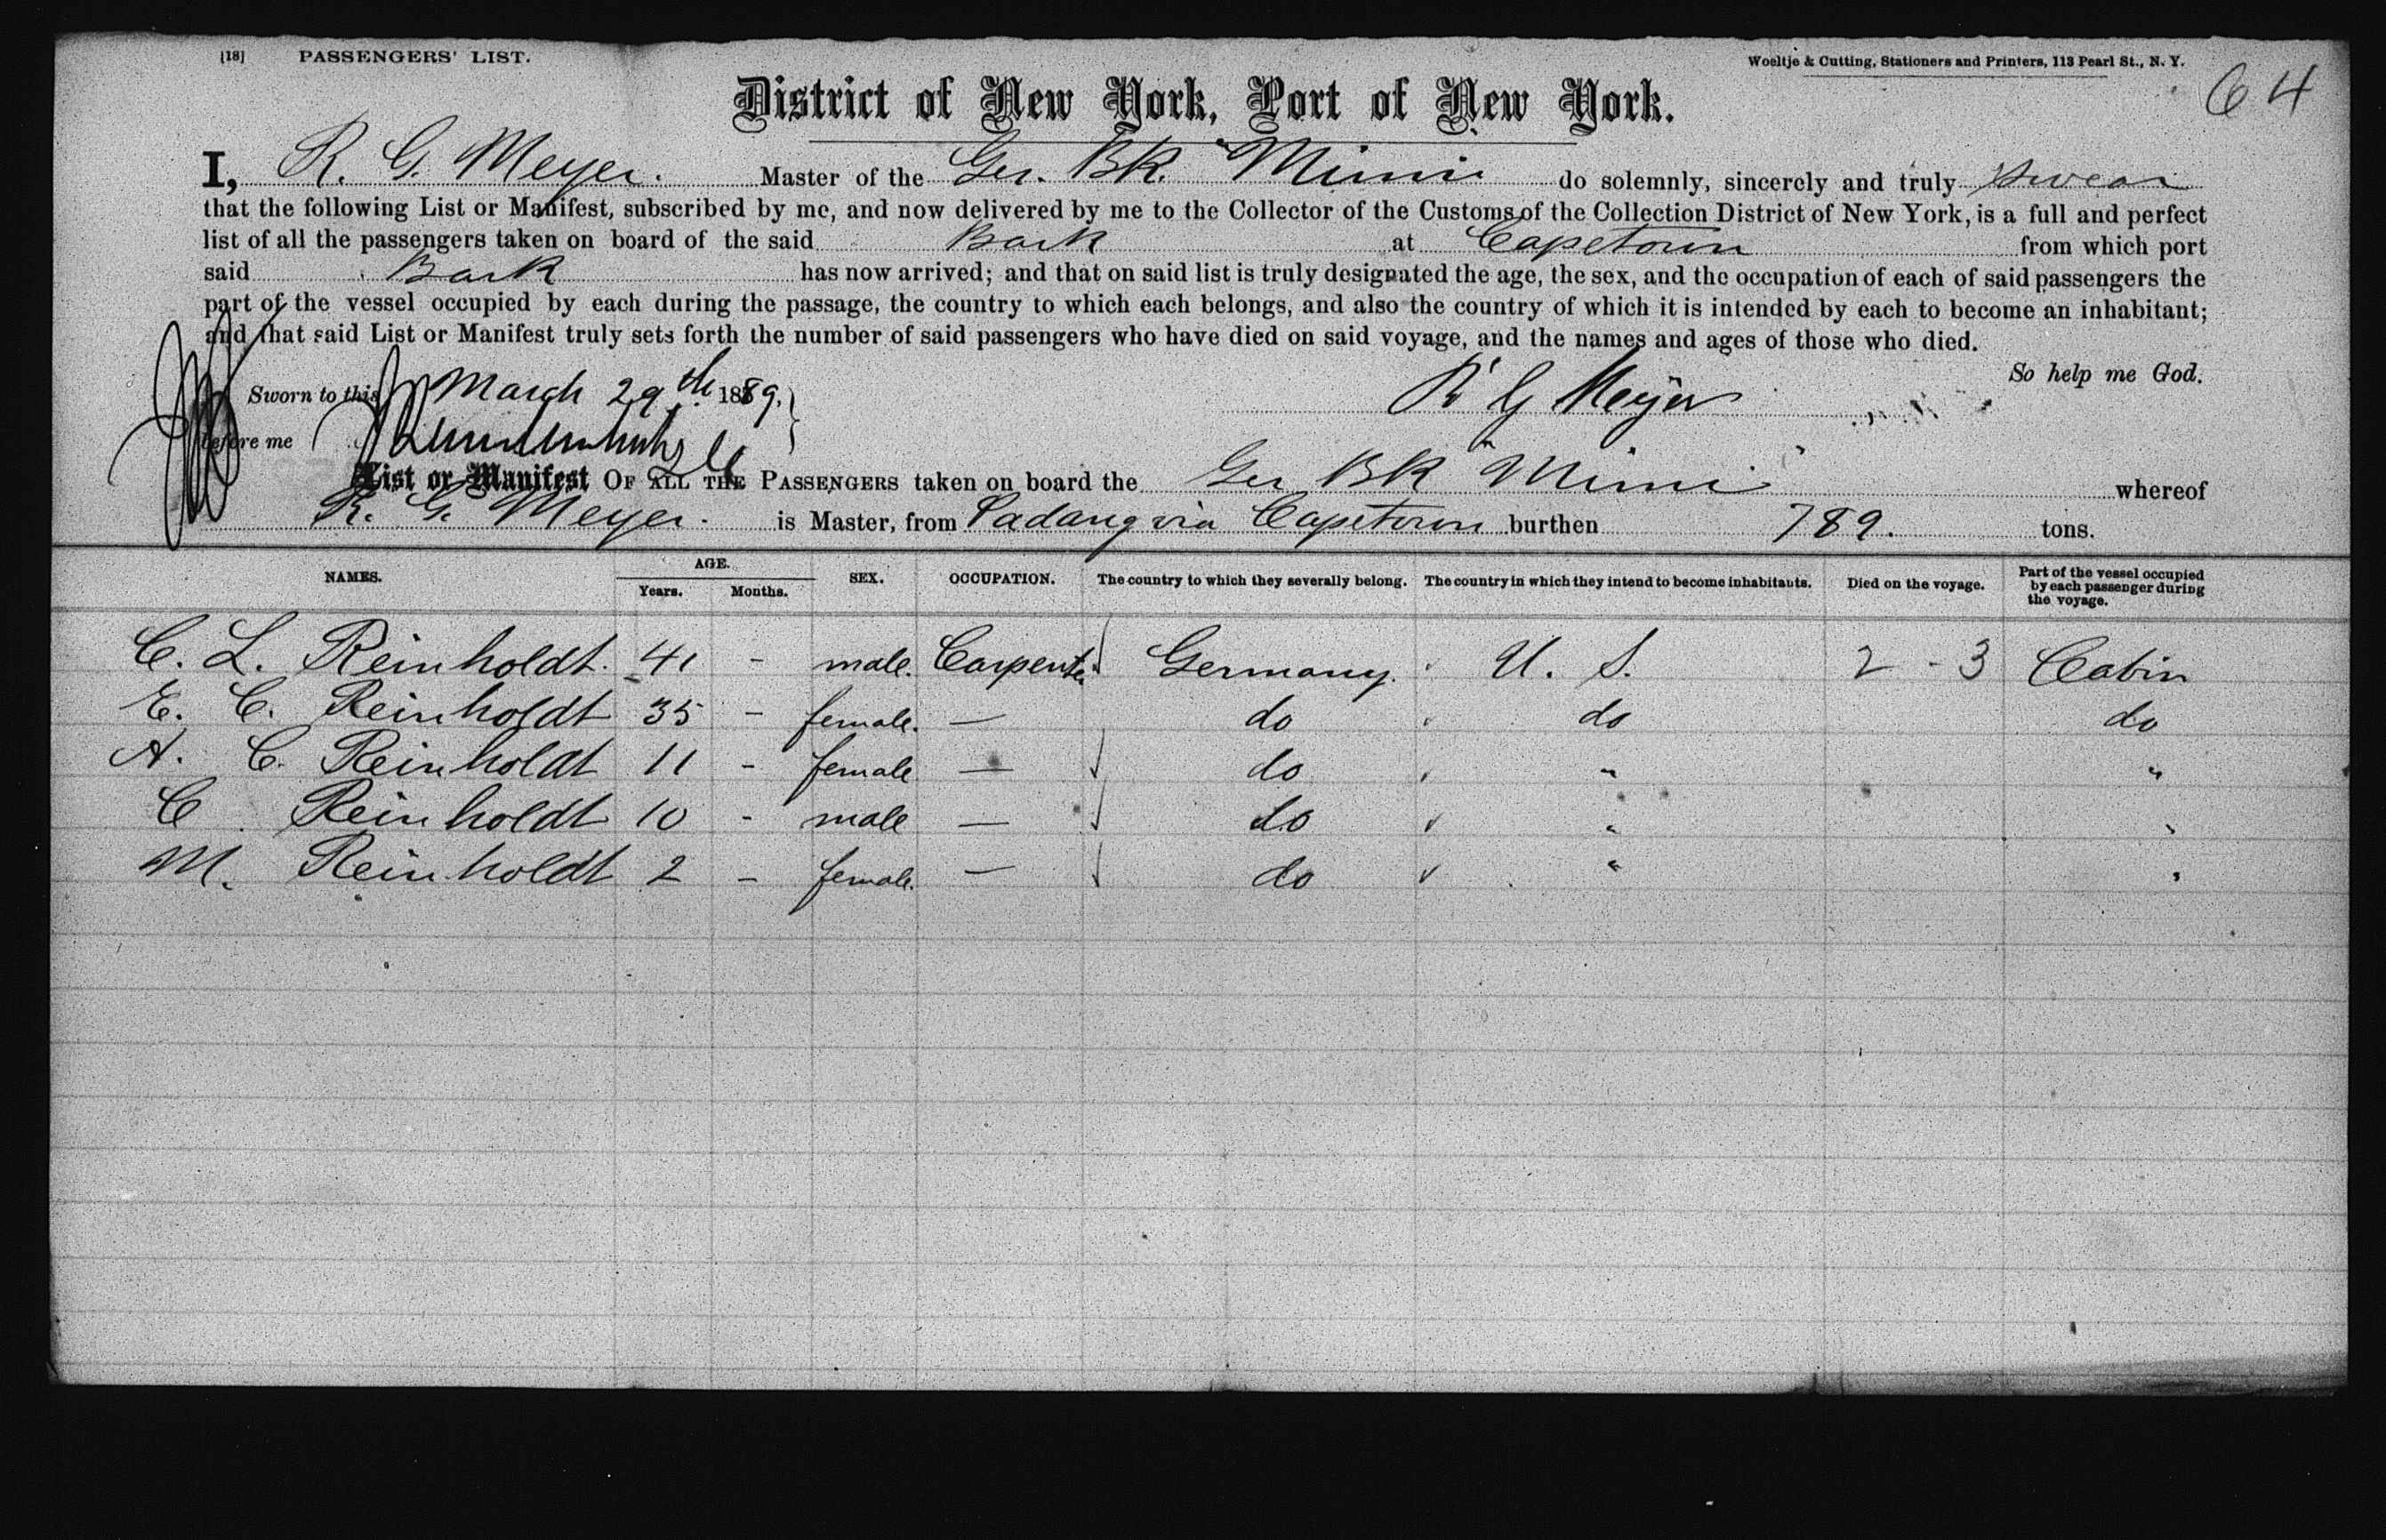 [18] PASSENGERS' LIST.
Woeltje & Cutting, Stationers and Printers, 113 Pearl St., N. Y.
64
District of New York, Port of New York.
I, R. G. Meyer. Master of the Ger. BK. "Mimi do solemnly, sincerely and truly swear
that the following List or Manifest, subscribed by me, and now delivered by me to the Collector of the Customs of the Collection District of New York, is a full and perfect
list of all the passengers taken on board of the said Bark at Capetown from which port
said Bark has now arrived; and that on said list is truly designated the age, the sex, and the occupation of each of said passengers the
part of the vessel occupied by each during the passage, the country to which each belongs, and also the country of which it is intended by each to become an inhabitant;
and that said List or Manifest truly sets forth the number of said passengers who have died on said voyage, and the names and ages of those who died.
So help me God.
Sworn to this March 29th 1889,
R G Meyer
before me
List or Manifest OF ALL THE PASSENGERS taken on board the Ger BK "Mimi" whereof
R. G. Meyer. is Master, from Padang via Capetown burthen 789. tons.
NAMES. AGE. Years. Months. SEX. OCCUPATION. The country to which they severally belong. The country in which they intend to become inhabitants. Died on the voyage. Part of the vessel occupied by each passenger during the voyage.
C. L. Reinholdt. 41 - male. Carpenter Germany. U. S. 2 - 3 Cabin
E. C. Reinholdt 35 - female. — do do do
A. C. Reinholdt 11 - female — do " "
C. Reinholdt 10 - male — do " "
M. Reinholdt 2 - female. — do " "